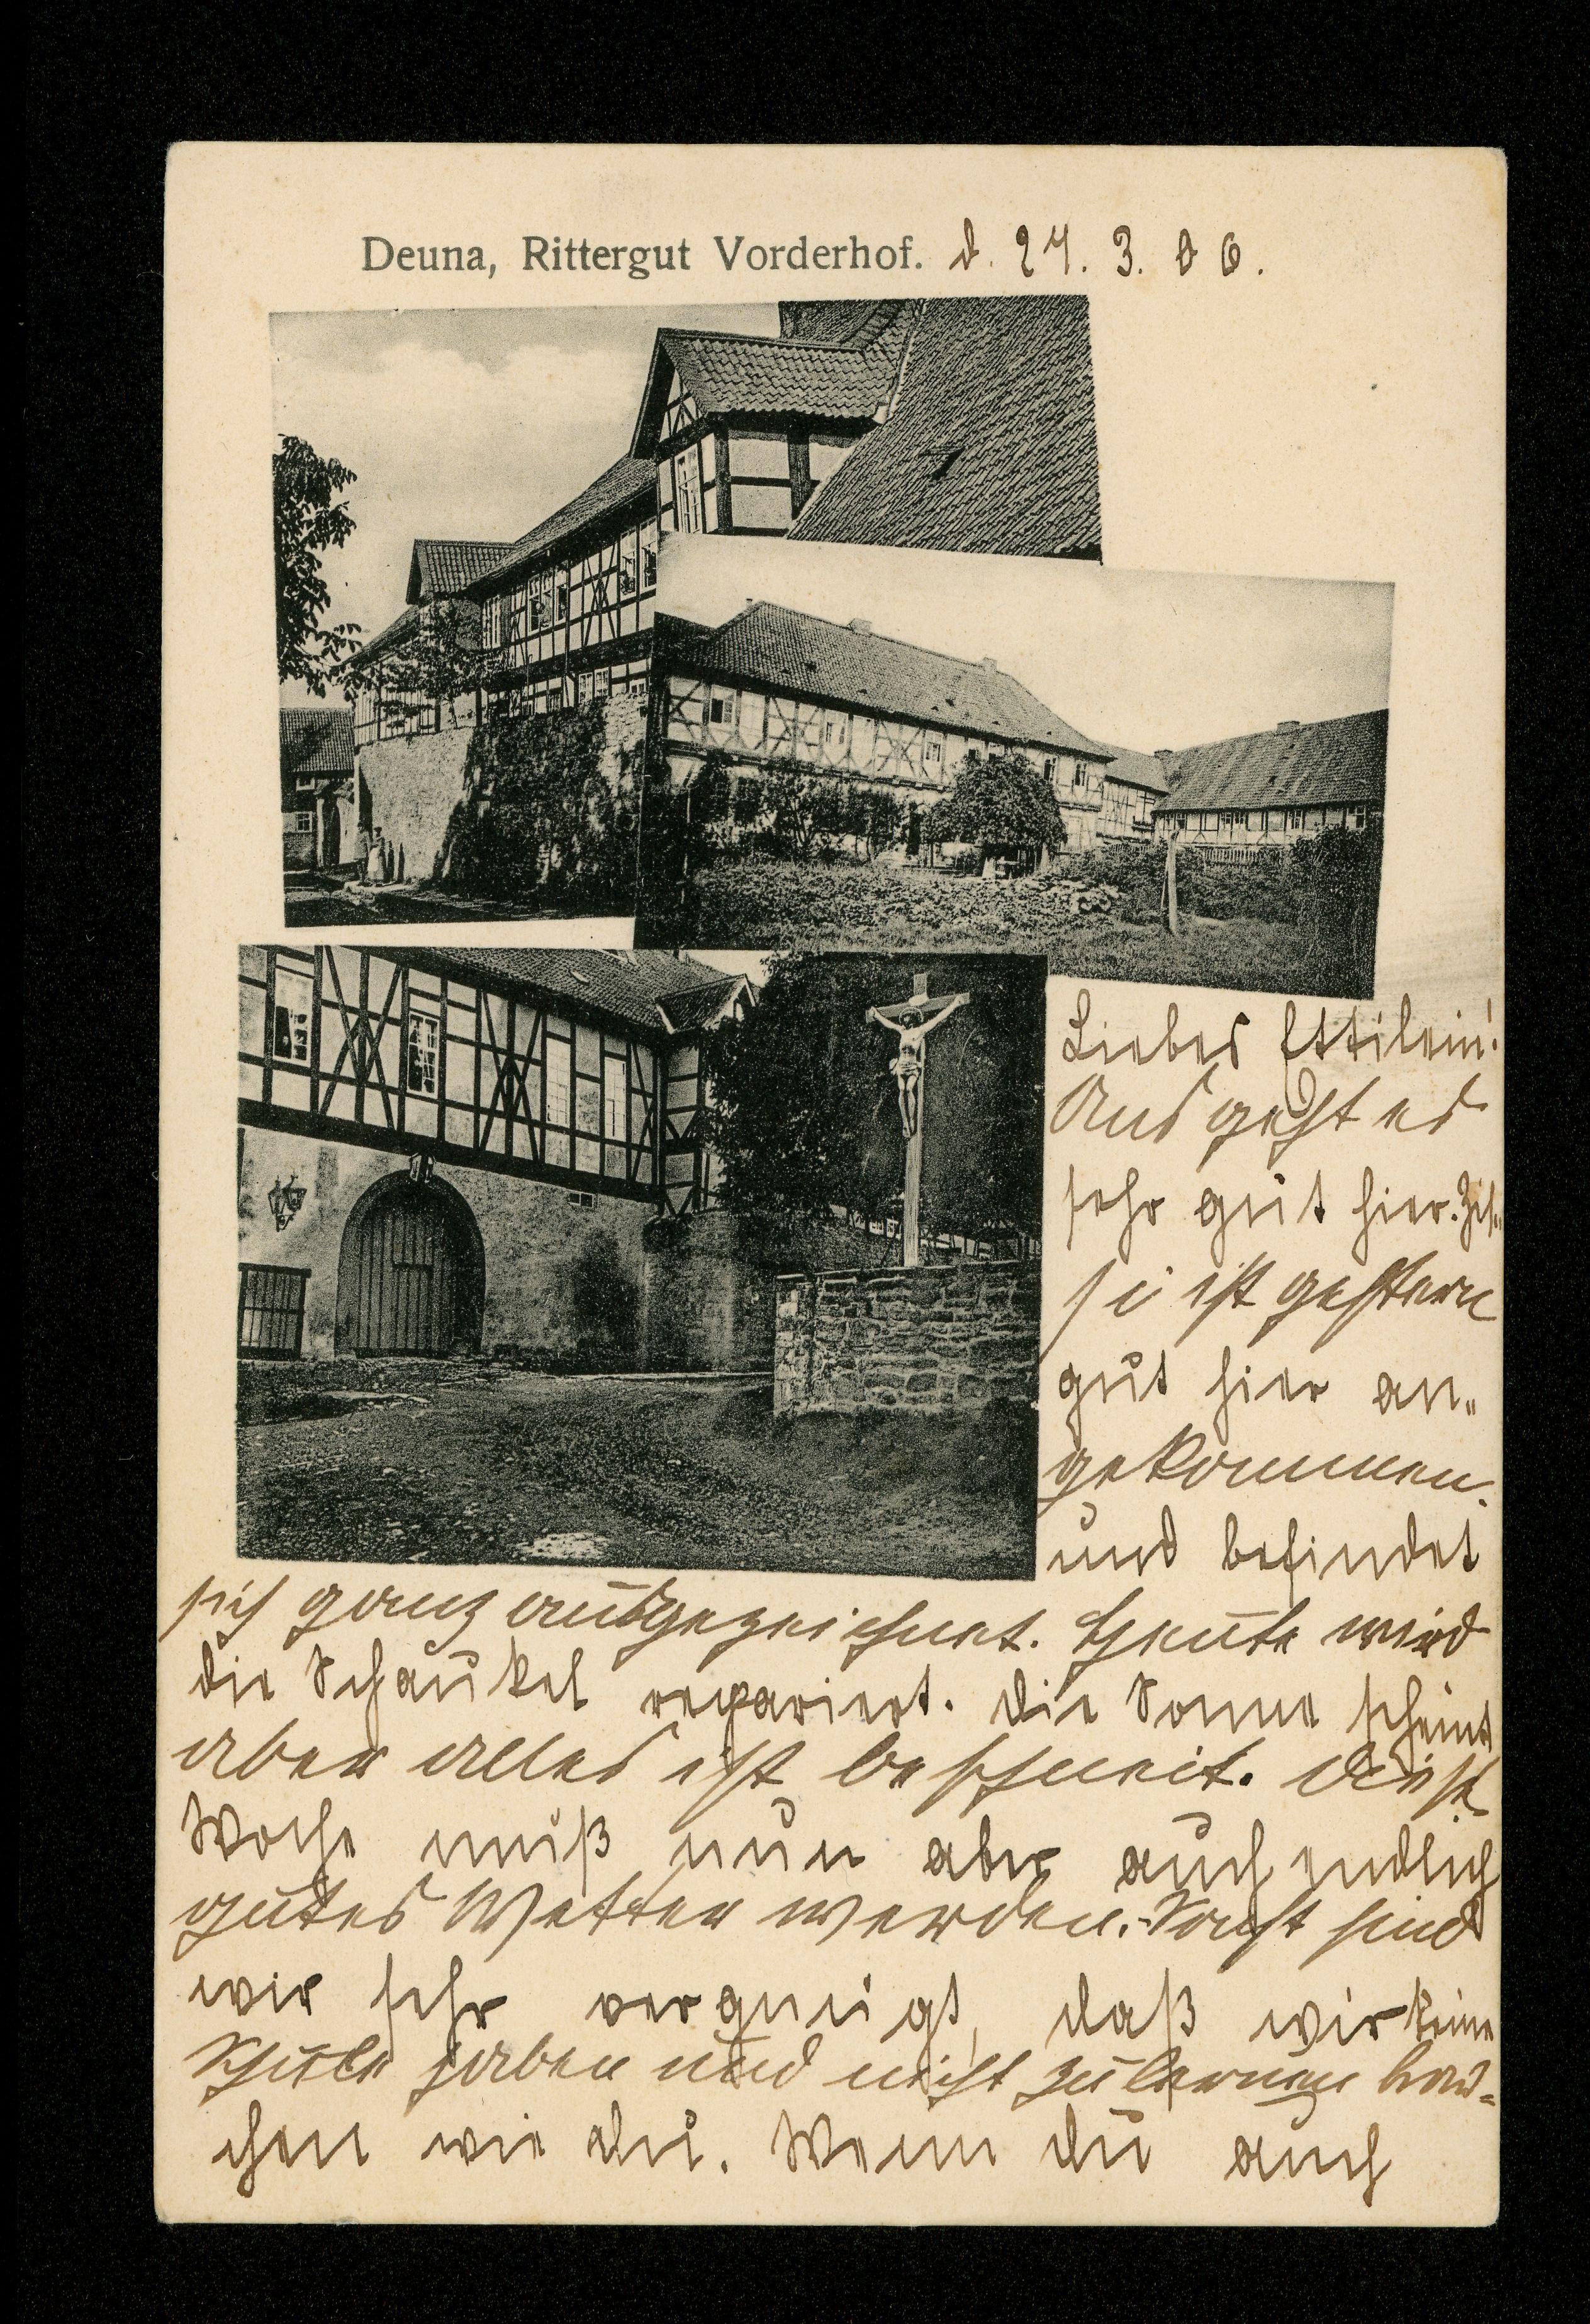 Deuna, Rittergut Vorderhof. d. 27. 3. 06.
Liebes Ettilein!
Uns geht es
sehr gut hier. Zis-
si ist gestern
gut hier an-
gekommen.
und befindet
sich ganz ausgezeichnet. Heute wird
die Schaukel repariert. Die Sonne scheint
aber alles ist beschneit. Diese
Woche muß nun aber auch endlich
gutes Wetter werden. Sonst sind
wir sehr vergnügt, daß wir keine
Schule haben und nicht zu lernen brau-
chen wie du. Wenn du auch